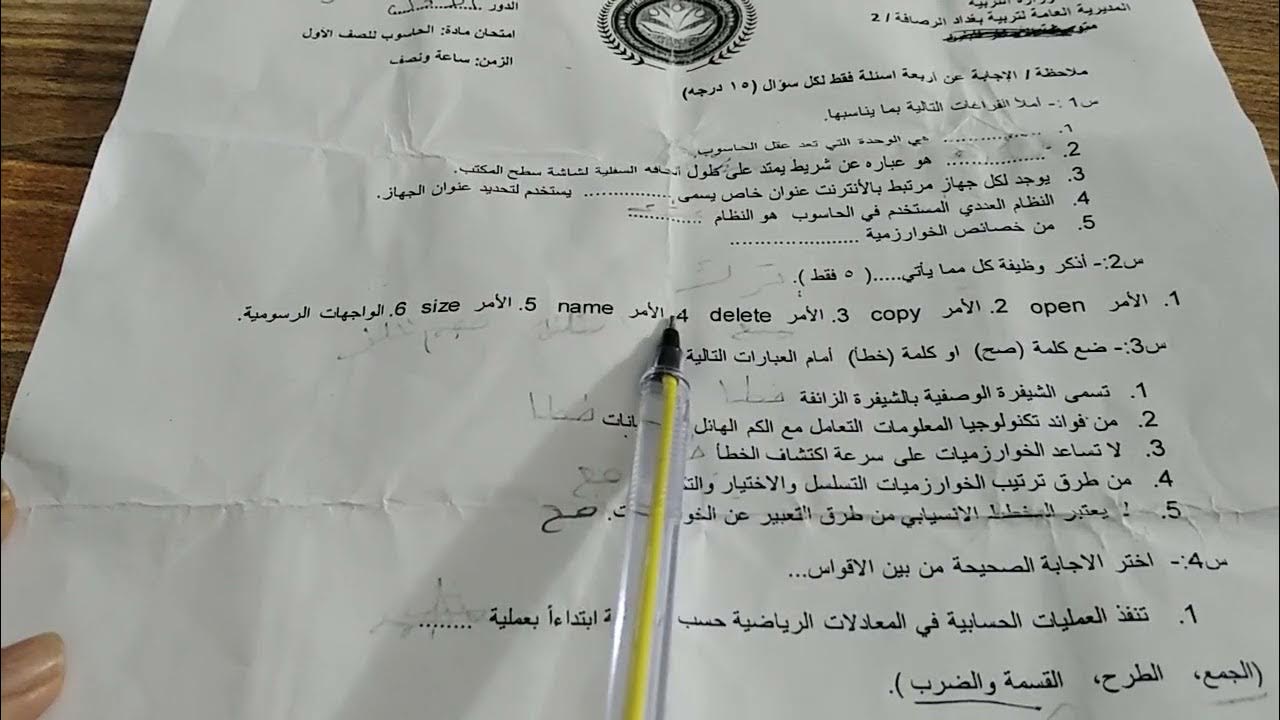 المديرية العامة لتربية بغداد الرصافة / 2
الدور
امتحان مادة: الحاسوب للصف الأول
الزمن: ساعة ونصف
ملاحظة / الإجابة عن اربعة اسئلة فقط لكل سؤال (١٥ درجه)
س1 :- املأ الفراغات التالية بما يناسبها.
1. .................. هي الوحدة التي تعد عقل الحاسوب.
2. .................. هو عباره عن شريط يمتد على طول الحافه السفلية لشاشة سطح المكتب.
3. يوجد لكل جهاز مرتبط بالأنترنت عنوان خاص يسمى .................. يستخدم لتحديد عنوان الجهاز.
4. النظام العددي المستخدم في الحاسوب هو النظام ..............
5. من خصائص الخوارزمية .....................
س2:- أذكر وظيفة كل مما يأتي.....( ٥ فقط ). ترك
1. الأمر open 2. الأمر copy 3. الأمر delete 4. الأمر name 5. الأمر size 6. الواجهات الرسومية.
س3:- ضع كلمة (صح) او كلمة (خطأ) أمام العبارات التالية
1. تسمى الشيفرة الوصفية بالشيفرة الزائفة خطا
2. من فوائد تكنولوجيا المعلومات التعامل مع الكم الهائل خطا
3. لا تساعد الخوارزميات على سرعة اكتشاف الخطأ
4. من طرق ترتيب الخوارزميات التسلسل والاختيار صح
5. لا يعتبر المخطط الانسيابي من طرق التعبير عن صح
س4:- اختر الاجابة الصحيحة من بين الاقواس...
1. تنفذ العمليات الحسابية في المعادلات الرياضية حسب ابتداءاً بعملية ........
(الجمع، الطرح، القسمة والضرب ).